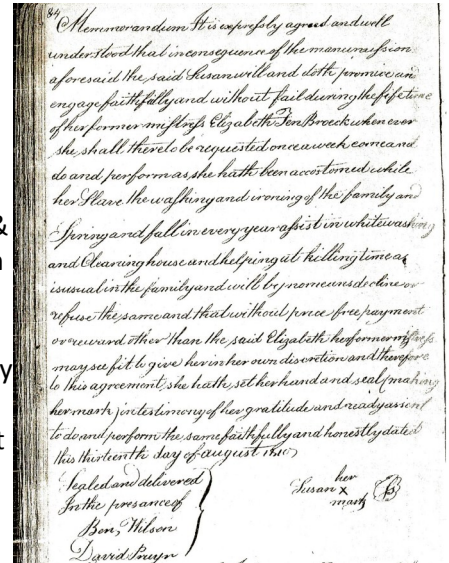 84
Memmorandum It is expressly agreed and well
understood that in consequence of the manumission
aforesaid the said Susan will and doth promise and
engage faithfully and without fail during the life time
of her former mistress Elizabeth Ten Broeck whenever
she shall thereto be requested once a week come and
do and perform as she hath been accostomed while
her Slave the washing and ironing of the family and
Spring and fall in every year assist in whitewashing
&
and Cleaning house and helping at killing time as
is usual in the family and will by no means decline or
refuse the same and that without price free payment
or reward other than the said Elizabeth her former mistress
may see fit to give her in her own discretion and therefore
y
to this agreement, she hath set her hand and seal making
her mark in testimony of her gratitude and ready assent
t
to do and perform the same faithfully and honestly dated
this thirteenth day of august
Sealed and delivered
In the presance of
Ben, Wilson
David Pruyn
her
Susan x
mark